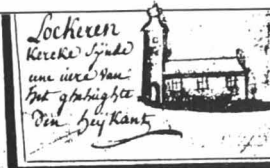 Lockeren
Kereke Synde
une uere van
Het gehughte
Den heykant